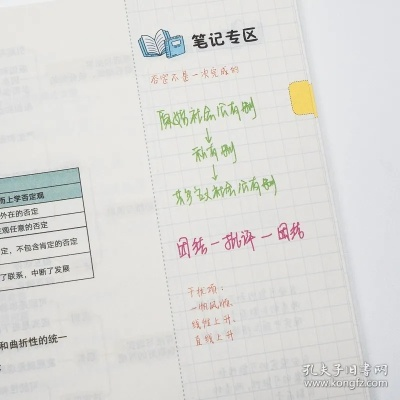 笔记专区
否定不是一次完成的
原始社会公有制
↓
私有制
↓
共产主义社会公有制
团结—批评—团结
干扰项:
一帆风顺.
线性上升.
直线上升
而上学否定观
外在的否定
主观任意的否定
定,不包含肯定的否定
了联系,中断了发展
和曲折性的统一
孔夫子旧书网
www.kongfz.com